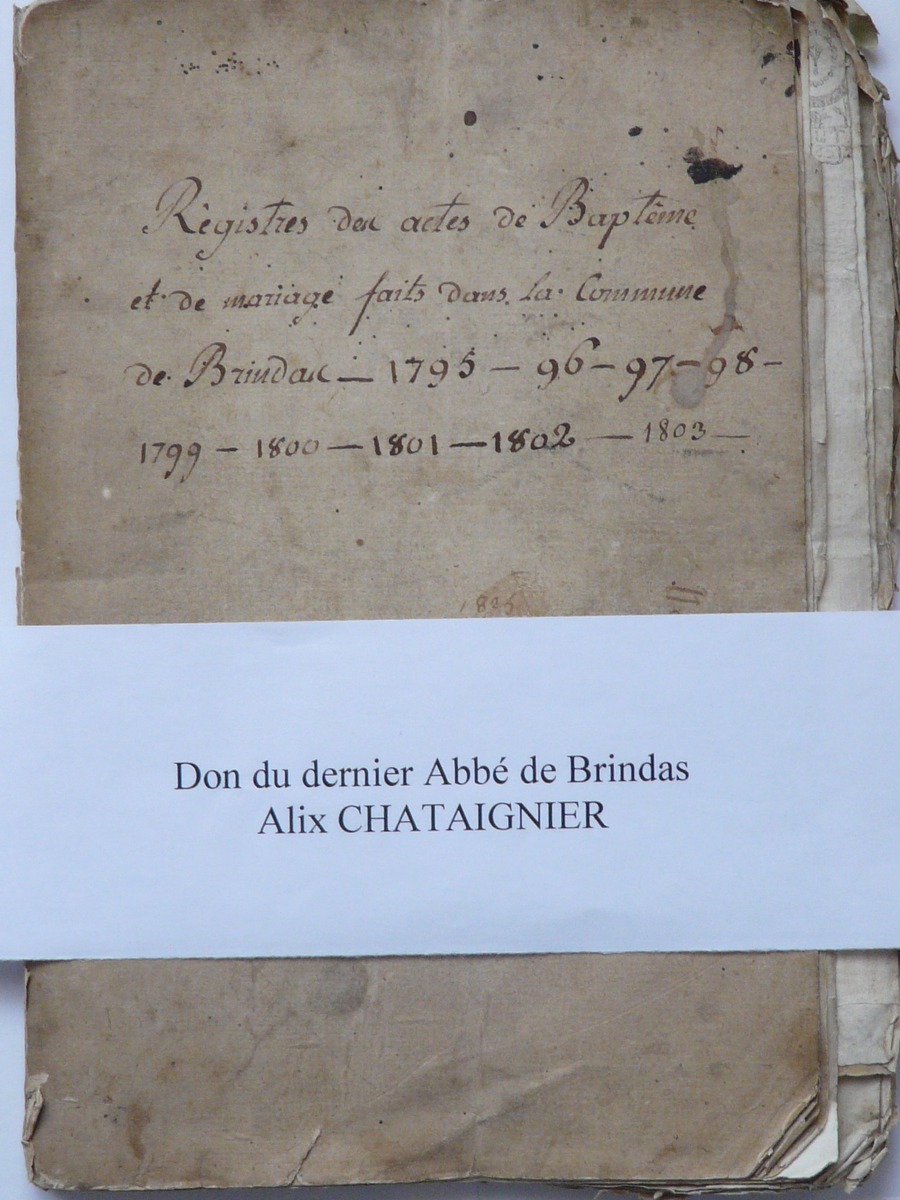 Règistres des actes de Baptême
et de mariage faits dans la Commune
de Brindas — 1795 — 96 — 97 — 98 —
1799 — 1800 — 1801 — 1802 — 1803 —
Don du dernier Abbé de Brindas
Alix CHATAIGNIER